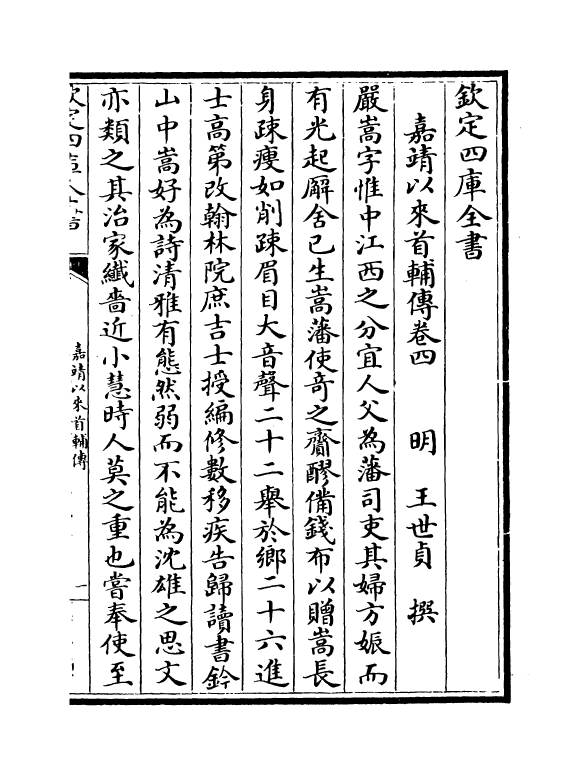 欽定四庫全書
嘉靖以來首輔傳卷四 明 王世貞 撰
嚴嵩字惟中江西之分宜人父為藩司吏其婦方娠而
有光起廨舍已生嵩藩使奇之齎醪備錢布以贈嵩長
身疎瘦如削疎眉目大音聲二十二舉於鄉二十六進
士高第改翰林院庶吉士授編修數移疾告歸讀書鈐
山中嵩好為詩清雅有態然弱而不能為沈雄之思文
亦類之其治家纖嗇近小慧時人莫之重也嘗奉使至
嘉靖以來首輔傳
一